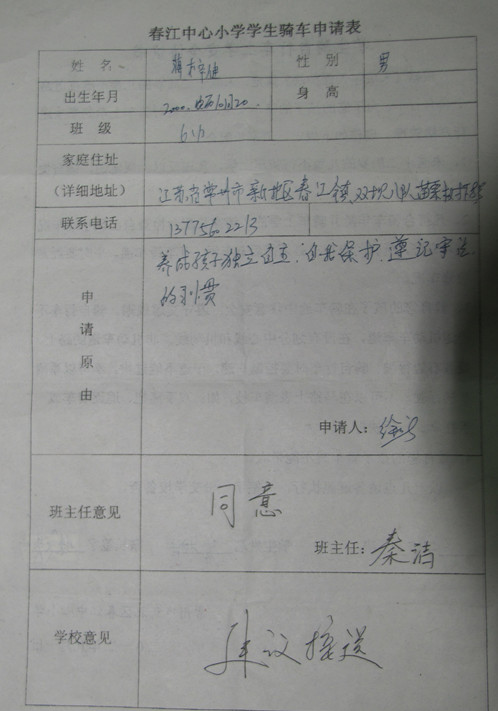 春江中心小学学生骑车申请表
姓 名 性 别 男
出生年月 身 高
班 级
家庭住址
(详细地址) 江苏省常州市新北区春江镇双坝八队
联系电话
养成孩子独立自主、自我保护、遵记守法
的习惯
申
请
原
由
申请人:
同意
班主任意见
班主任: 秦洁
学校意见 建议接送